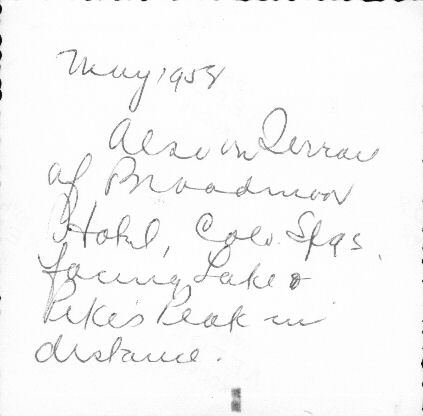 May 1958
Also on Terrace
of Broadmoor
Hotel, Colo. Spgs.
facing Lake &
Pikes Peak in
distance.